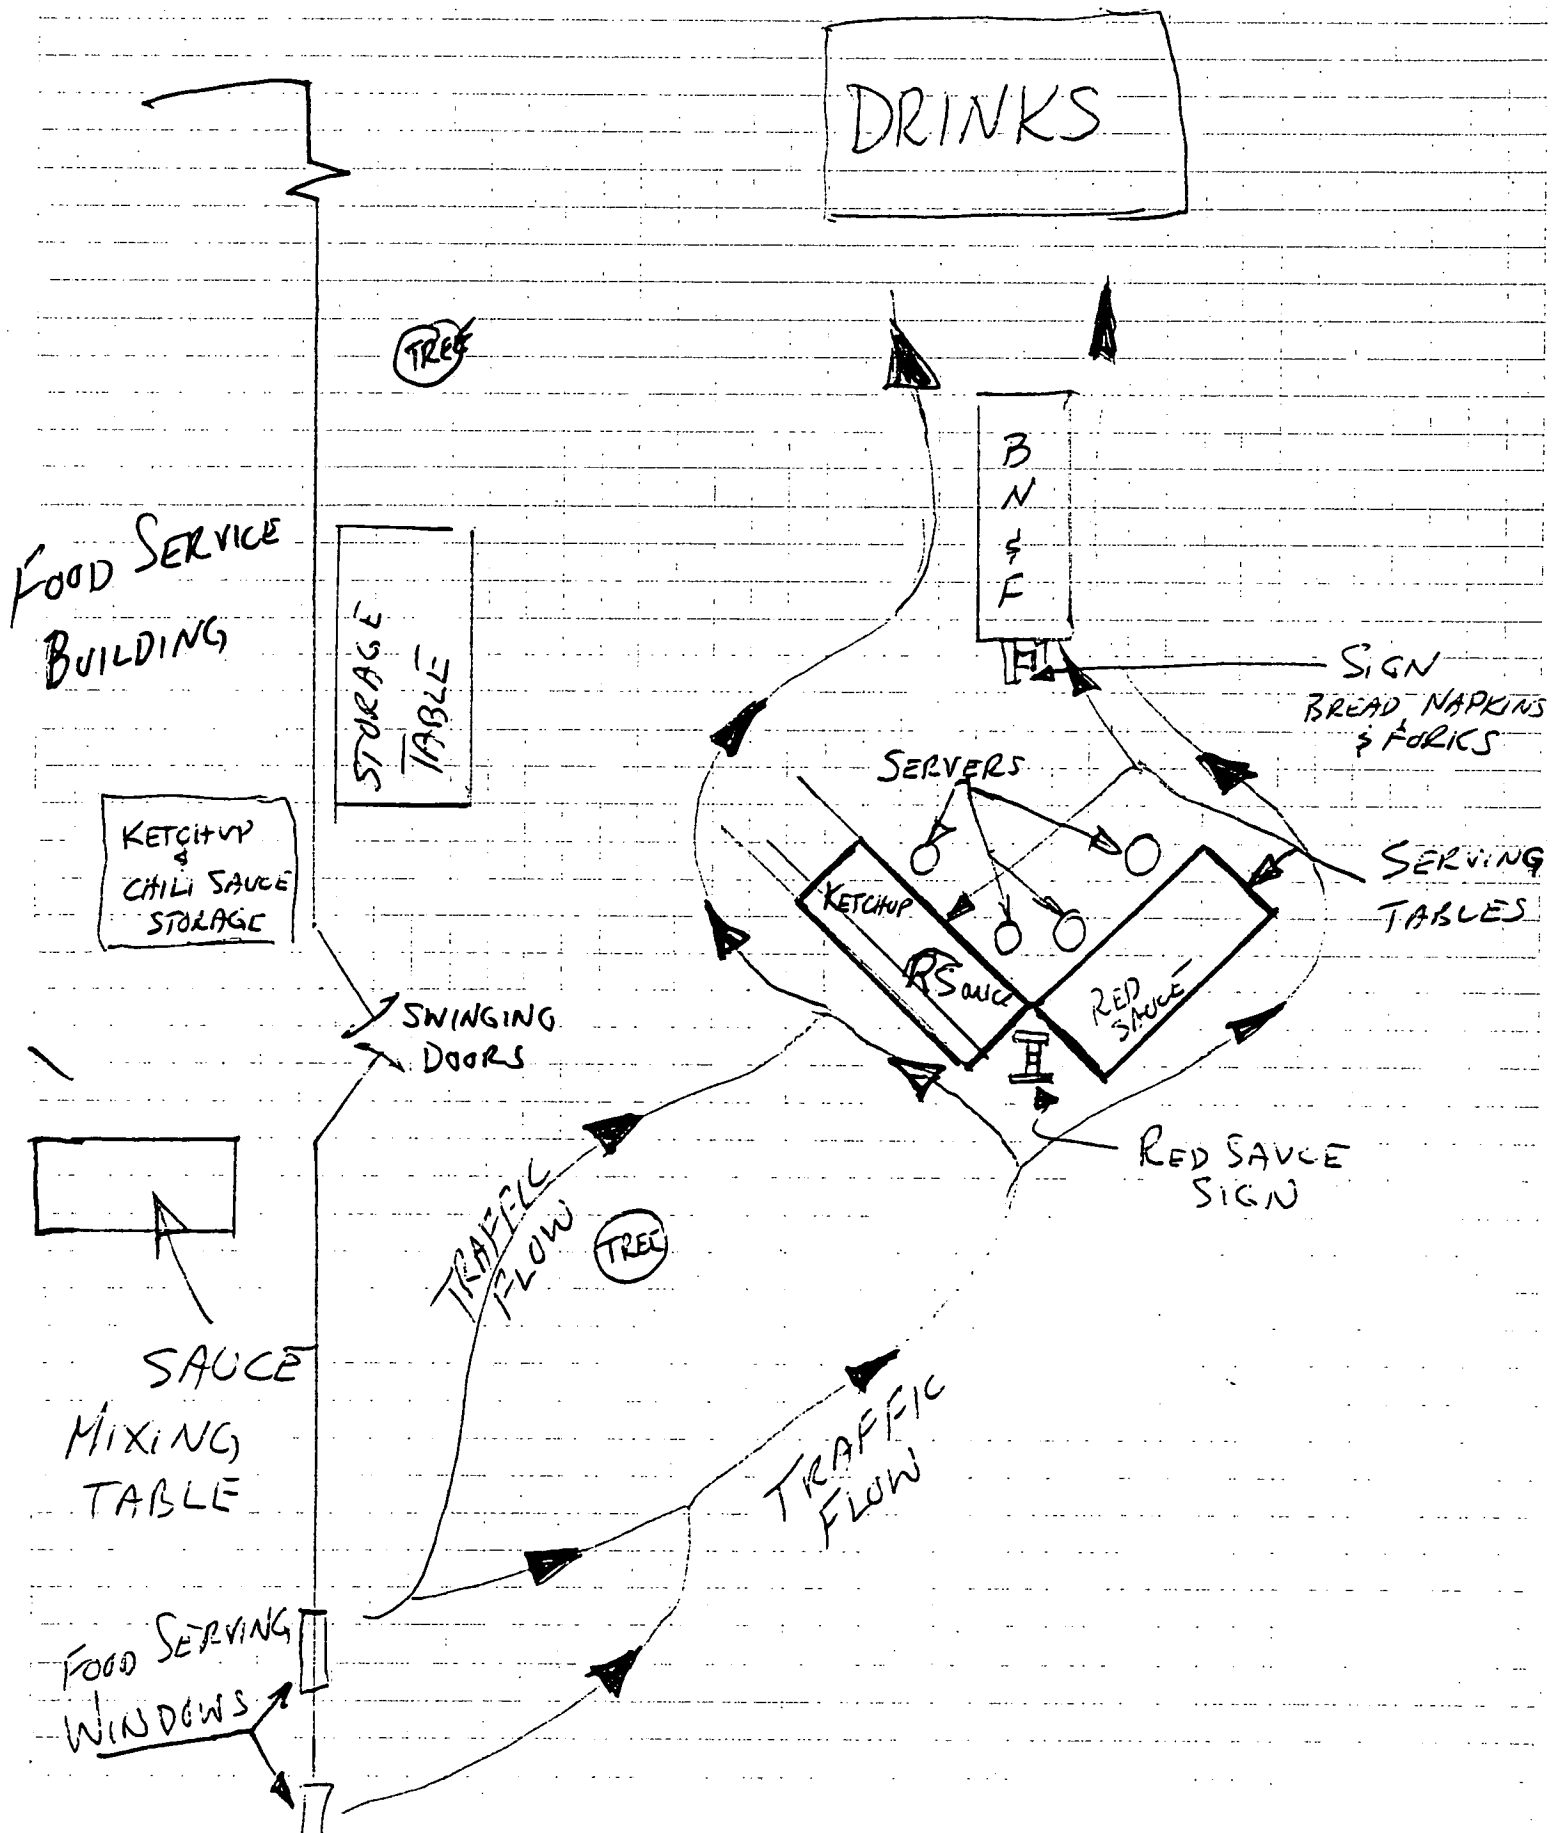 DRINKS
TREE
B
N
&
F
FOOD SERVICE
BUILDING
STORAGE
TABLE
SIGN
BREAD, NAPKINS
& FORKS
SERVERS
KETCHUP
&
CHILI SAUCE
STORAGE
KETCHUP
R SAUCE
RED
SAUCE
SERVING
TABLES
SWINGING
DOORS
RED SAUCE
SIGN
TRAFFIC
FLOW
TREE
SAUCE
MIXING
TABLE
TRAFFIC
FLOW
FOOD SERVING
WINDOWS